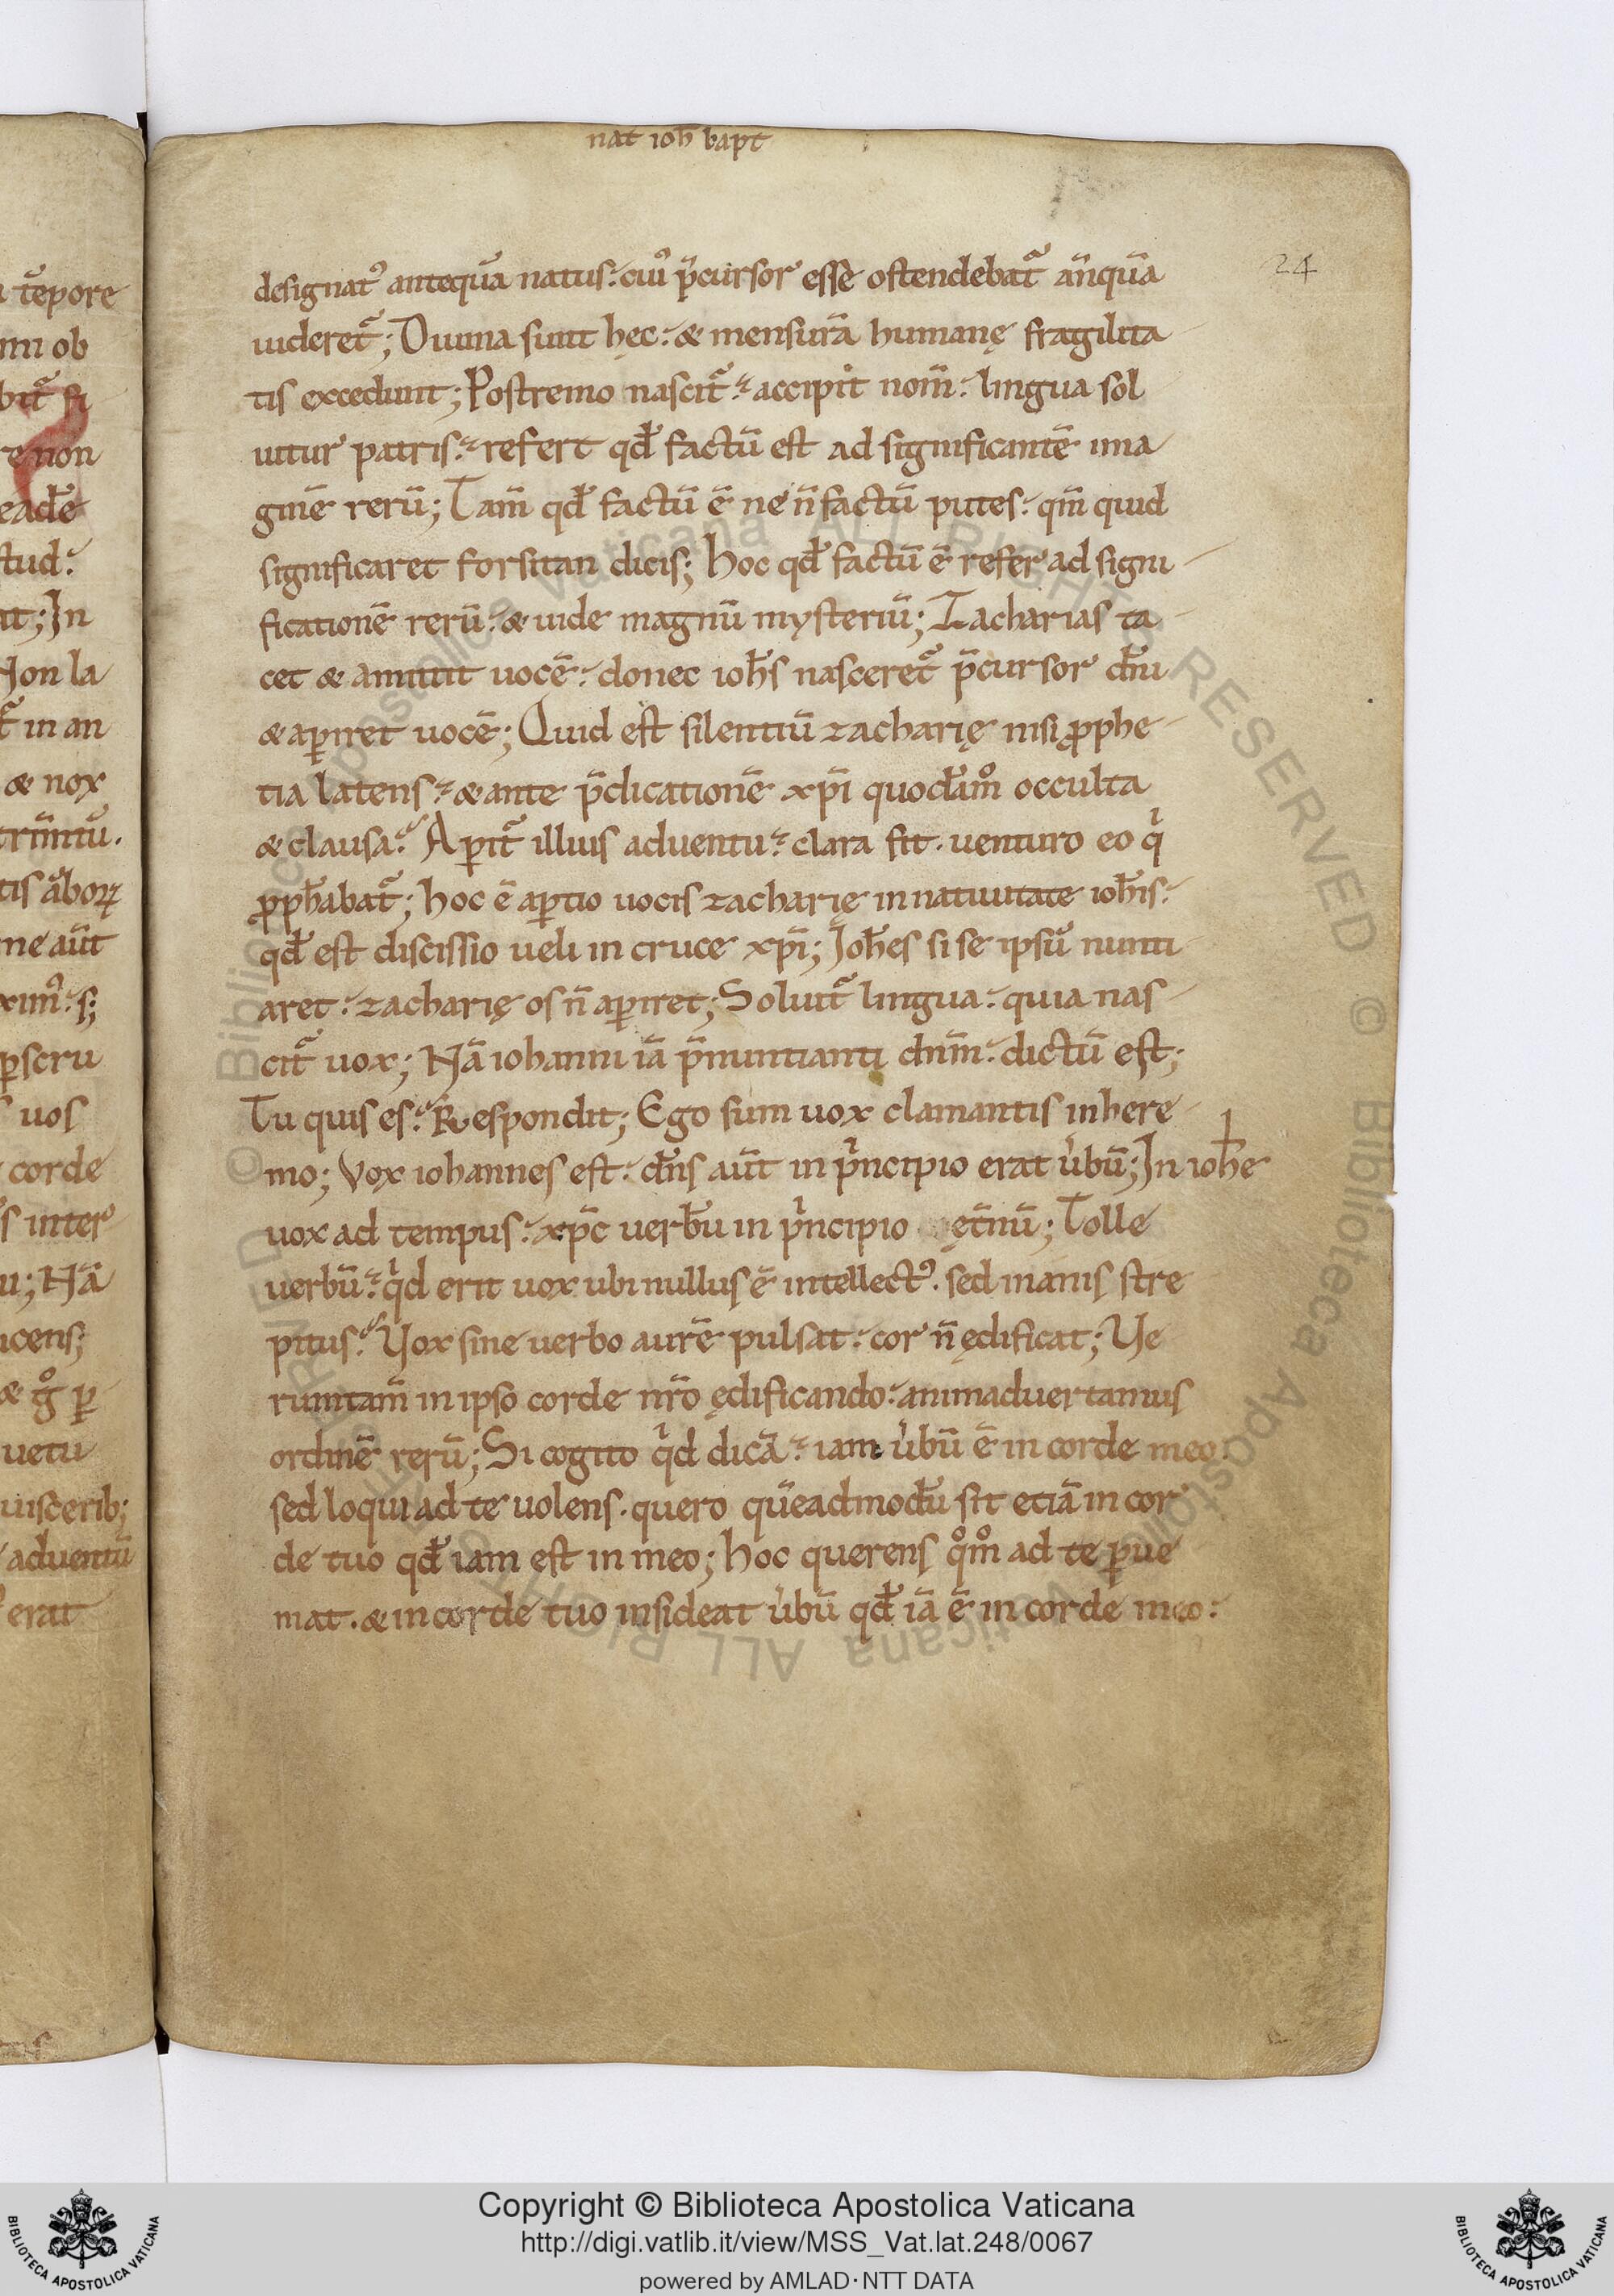 nat ioh̄ bapt
24
designatꝰ antequā natus. cuiꝰ p̄cursor esse ostendebat᷑ an̄quā
uideret᷑; Diuina sunt hęc. & mensurā humanę fragilita
tis excedunt; Postremo nascit᷑. accipit nom̄. lingua sol
uitur patris. refert qđ factū est ad significantē ima
ginē rerū; Tam̄ qđ factū ē ne n̄ factū putes. qm̄ quid
significaret forsitan dicis; hoc qđ factū ē refer ad signi
ficationē rerū. & uide magnū mysteriū; Zacharias ta
cet & amittit uocē. donec ioħs nasceret᷑ p̄cursor dn̄i
& aꝑiret uocē; Quid est silentiū zacharię nisi ꝓphe
tia latens. & ante p̄dicationē xp̄i quodāmͦ occulta
& clausa. Aꝑit᷑ illius aduentu. clara fit. uenturo eo qⁱ
ꝓpħabat᷑; hoc ē aꝑtio uocis zacharię in natiuitate ioħis.
qđ est discissio ueli in cruce xp̄i; Ioħes si se ipsū nunti
aret. zacharię os n̄ aꝑiret; Soluit᷑ lingua. quia nas
cit᷑ uox; Nā iohanni iā p̄nuntianti dn̄m. dictū est;
Tu quis es. Respondit; Ego sum uox clamantis in here
mo; Vox iohannes est. dn̄s aūt in pⁱncipio erat ùbū; In ioħe
uox ad tempus. xp̄c uerbū in pⁱncipio ęt̄nū; Tolle
uerbū. qⁱd erit uox ubi nullus ē intellectꝰ. sed inanis stre
pitus. Vox sine uerbo aurē pulsat. cor n̄ ędificat; Ve
runtam̄ in ipso corde nr̄o ędificando. animaduertamus
ordinē rerū; Si cogito qⁱd dicā. iam ùbū ē in corde meo.
sed loqui ad te uolens. quero quēadmodū sit etiā in cor
de tuo qđ iam est in meo; hoc querens qͦmͦ ad te ꝑue
niat. & in corde tuo insideat ùbū qđ iā ē in corde meo.
Copyright © Biblioteca Apostolica Vaticana
http://digi.vatlib.it/view/MSS_Vat.lat.248/0067
powered by AMLAD·NTT DATA